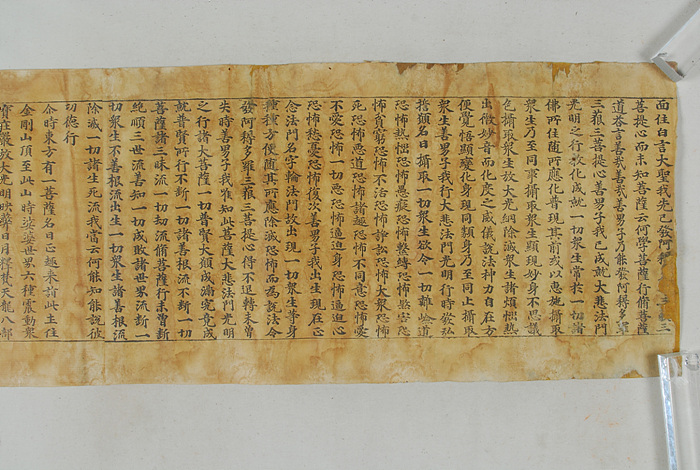 面住白言大聖我先已發阿耨三藐三
菩提心而未知菩薩云何學菩薩行脩菩薩
道荅言善哉善哉善男子乃能發阿耨多羅
三藐三菩提心善男子我已成就大悲法門
光明之行教化成就一切衆生常於一切諸
佛所住随所應化普現其前或以惠施攝取
衆生乃至同事攝取衆生顯現妙身不思議
色攝取衆生放大光網除滅衆生諸煩惱熱
出微妙音而化度之威儀說法神力自在方
便覺悟顯變化身現同類身乃至同止攝取
衆生善男子我行大悲法門光明行時發弘
誓願名曰攝取一切衆生欲令一切離嶮道
恐怖熱惱恐怖愚癡恐怖繫縛恐怖煞害恐
怖貧窮恐怖不活恐怖諍訟恐怖大衆恐怖
死恐怖惡道恐怖諸趣恐怖不同意恐怖愛
不愛恐怖一切惡恐怖逼迫身恐怖逼迫心
恐怖愁憂恐怖復次善男子我出生現在正
念法門名字輪法門故出現一切衆生等身
種種方便随其所應除滅恐怖而為說法令
發阿耨多羅三藐三菩提心得不退轉未曾
失時善男子我唯知此菩薩大悲法門光明
之行諸大菩薩一切普賢大願成滿究竟成
就普賢所行不斷一切諸善根流不斷一切
菩薩諸三昧流一切劫流脩菩薩行未曾斷
絶順三世流善知一切成敗諸世界流斷一
切衆生不善根流出生一切衆生諸善根流
除滅一切諸生死流我當云何能知能說彼
功德行
尒時東方有一菩薩名曰正趣来詣此土住
金剛山頂至此山時娑婆世界六種震動衆
寶莊嚴放大光明映蔽日月釋梵天龍八部